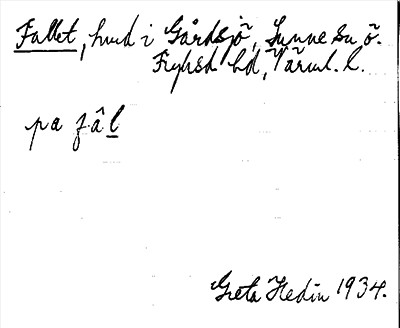 Fallet, hmd i Gårdsjö, Sunne sn ö.
Fryksd. hd, Värml. l.
pa fâl
Greta Hedin 1934.